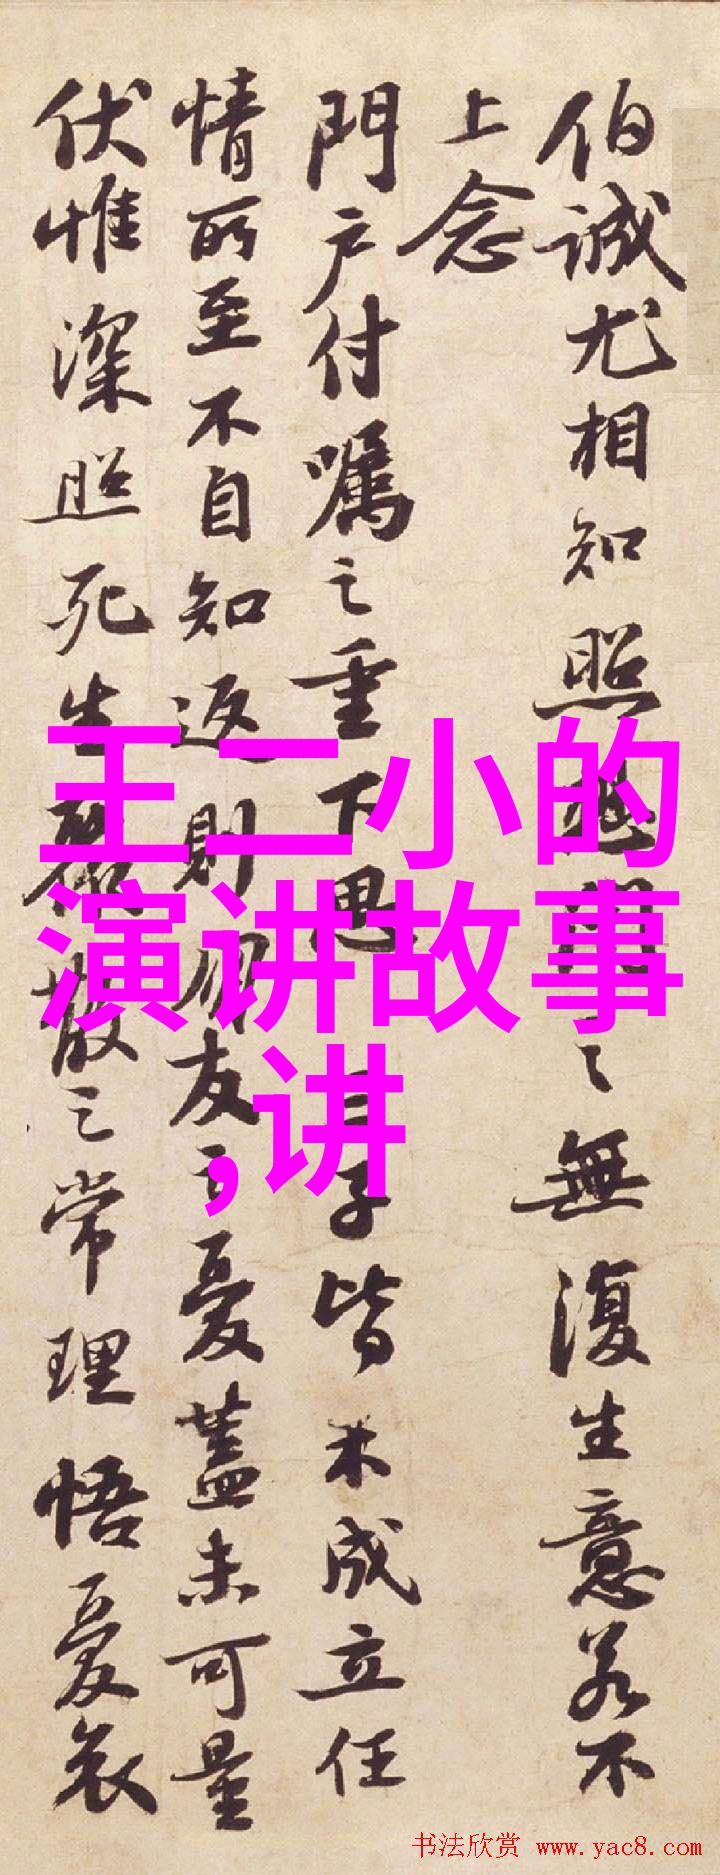 伯诚尤相知照想闻之無復生意若不
上念
門户付嘱之重下思二子皆未成立任
情所至不自知返則朋友之憂蓋未可量
伏惟深照死生聚散之常理悟憂哀
王二小的
演讲故事
,讲
书法欣赏 www.yac8.com